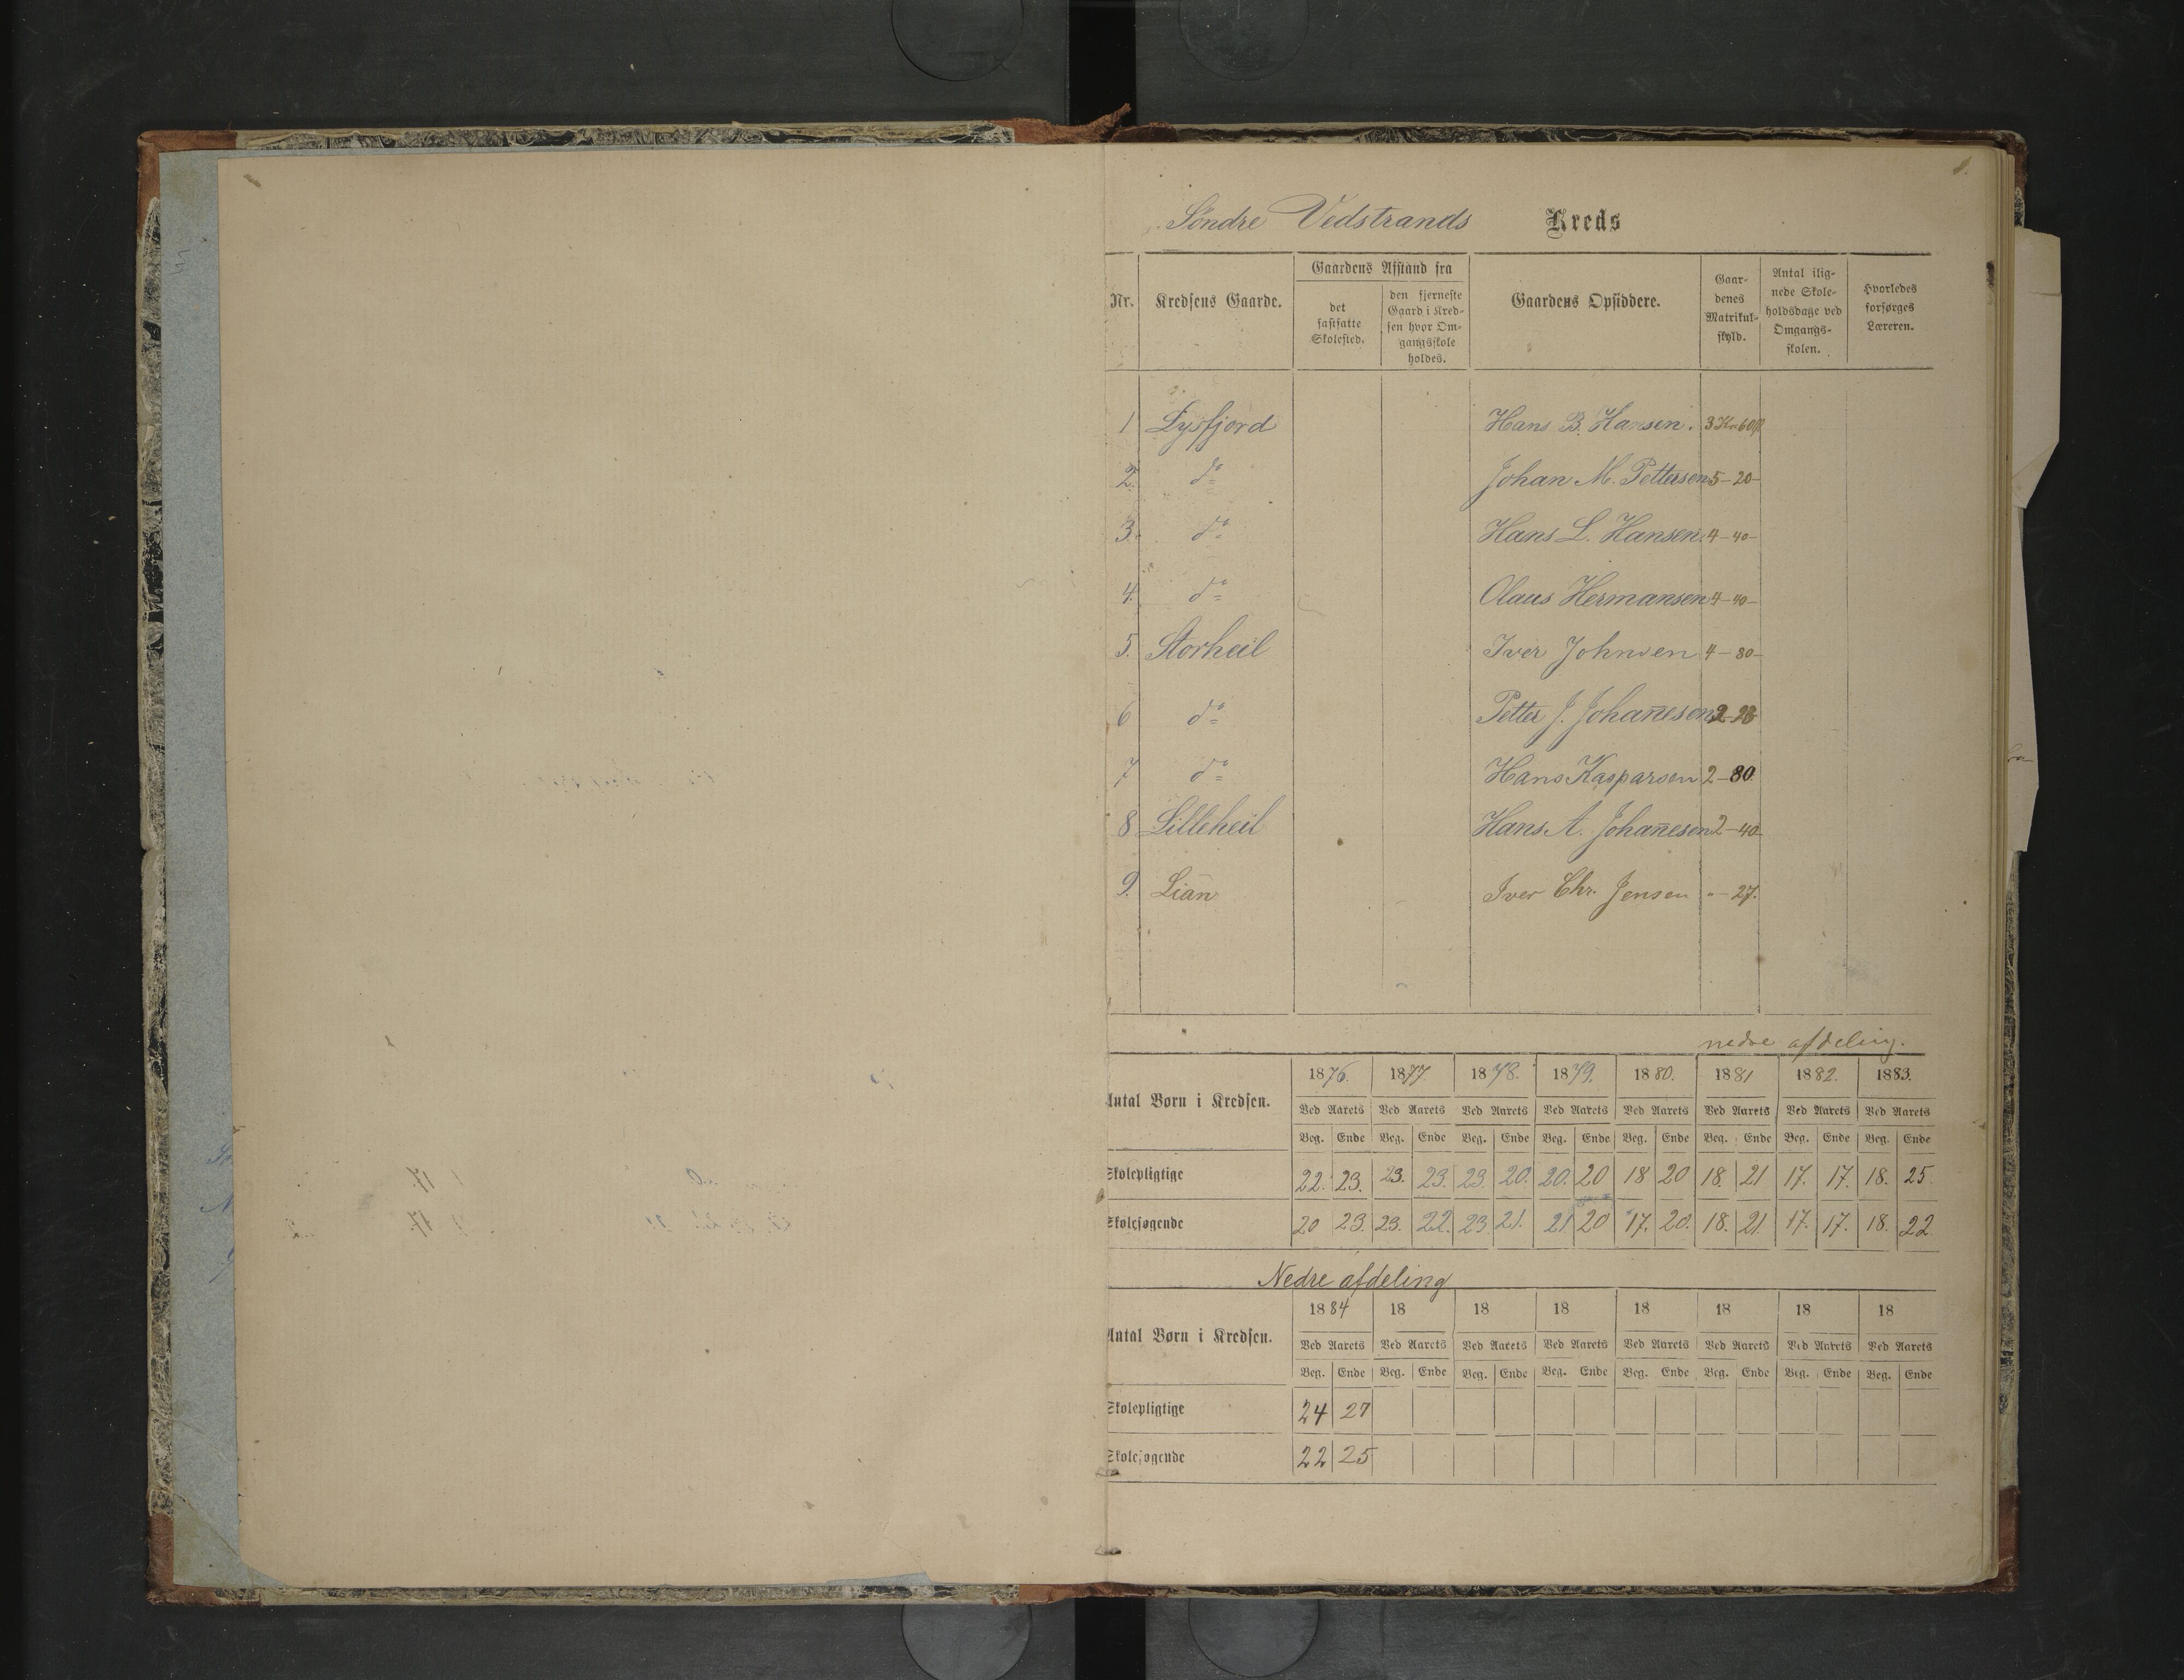 1.
Söndre Vedstrands Kreds
Nr. Kredsens Gaarde. Gaardens Afstand fra det fastsatte Skolested. den fjerneste Gaard i Kredsen hvor Omgangsskole holdes. Gaardens Opsiddere. Gaardenes Matrikulskyld. Antal ilignede Skoleholdsdage ved Omgangsskolen. Hvorledes forsørges Læreren.
1 Lysfjord Hans B. Hansen. 3 Kr 60
2. do Johan M. Pettersen 5-20-
3. do Hans L. Hansen. 4-40-
4. do Olaus Hermansen 4-40-
5. Storheil Iver Johnsen 4-80-
6 do Petter J. Johan̄esen
7 do Hans Kasparsen 2-80
8 Lilleheil Hans A. Johan̄esen 2-40-
9. Lian Iver Chr. Jensen "-27.
nedre afdeling.
Antal Børn i Kredsen. 1876. 1877 1878. 1879. 1880. 1881 1882. 1883.
Ved Aarets Ved Aarets Ved Aarets Ved Aarets Ved Aarets Ved Aarets Ved Aarets Ved Aarets
Beg. Ende Beg. Ende Beg. Ende Beg. Ende Beg. Ende Beg. Ende Beg. Ende Beg. Ende
Skolepligtige 22. 23. 23. 23. 23. 20. 20. 20 18 20 18. 21 17. 17. 18. 25.
Skolesøgende 20 23. 23. 22. 23 21. 21 20 17. 20. 18. 21. 17. 17. 18. 22
Nedre afdeling
Antal Børn i Kredsen. 1884 18 18 18 18 18 18 18
Ved Aarets Ved Aarets Ved Aarets Ved Aarets Ved Aarets Ved Aarets Ved Aarets Ved Aarets
Beg. Ende Beg. Ende Beg. Ende Beg. Ende Beg. Ende Beg. Ende Beg. Ende Beg. Ende
Skolepligtige 24 27
Skolesøgende 22 25